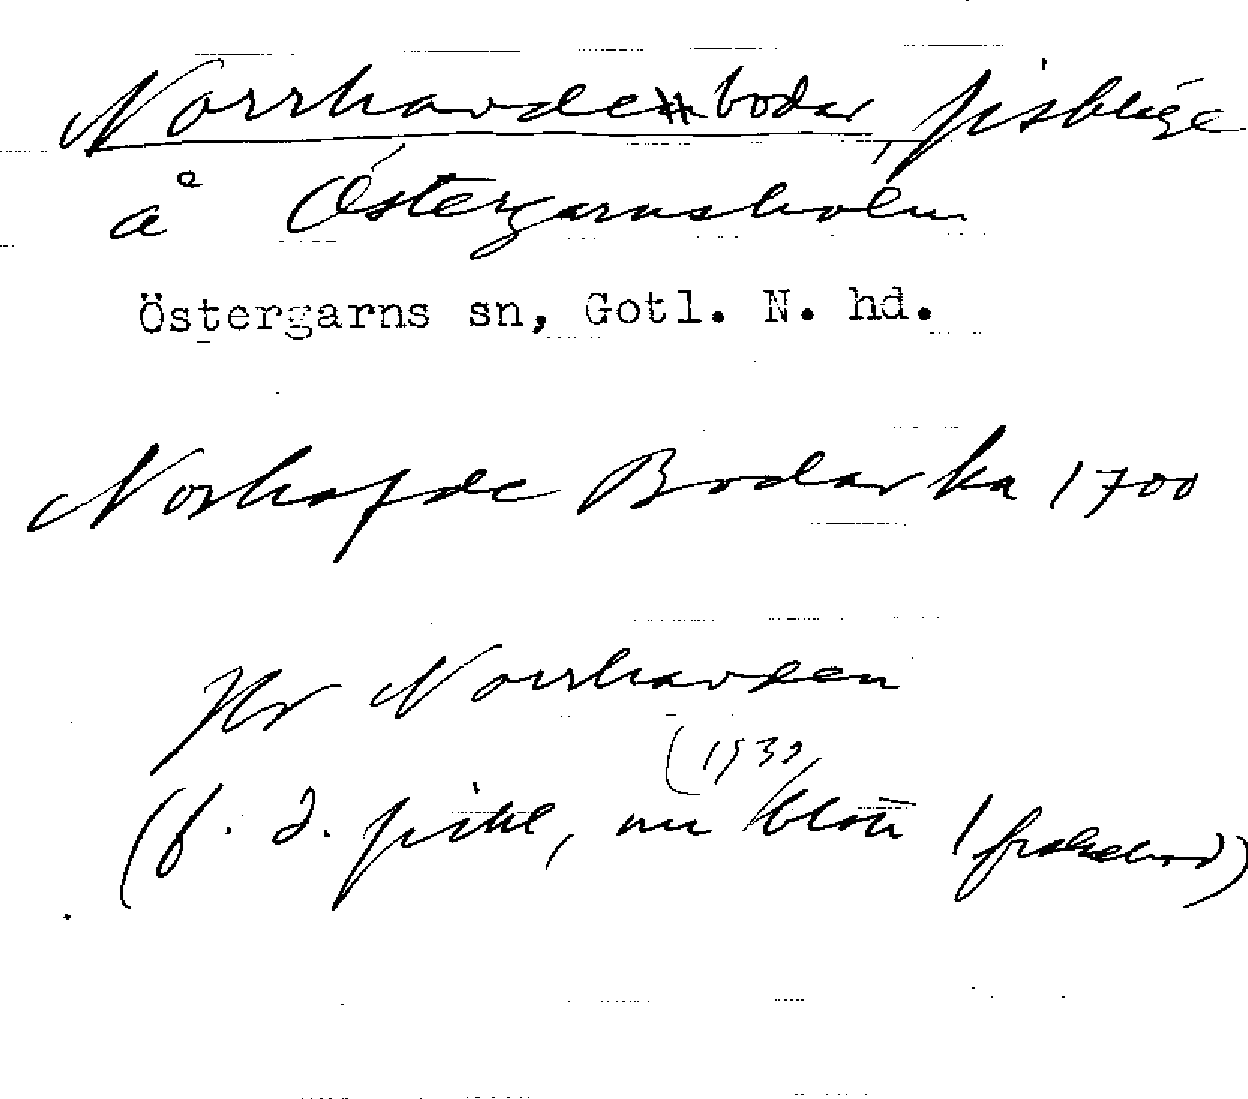 Norrhavdebodar, fiskläge
å Östergarnsholm
Östergarns sn, Gotl. N. hd.
Norhafde Bodar ka 1700
Jfr Norrhavden
(1939
(f. d. fiskl, nu blott 1 fiskebod)